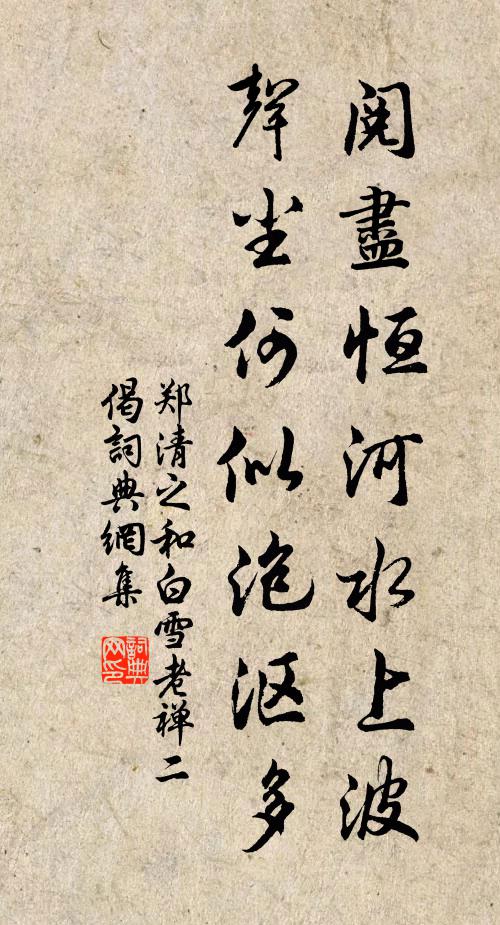 阅盡恒河水上波
聲尘何似泡沤多
郑清之和白雪老禅二
偈詞典網集
詞典网印